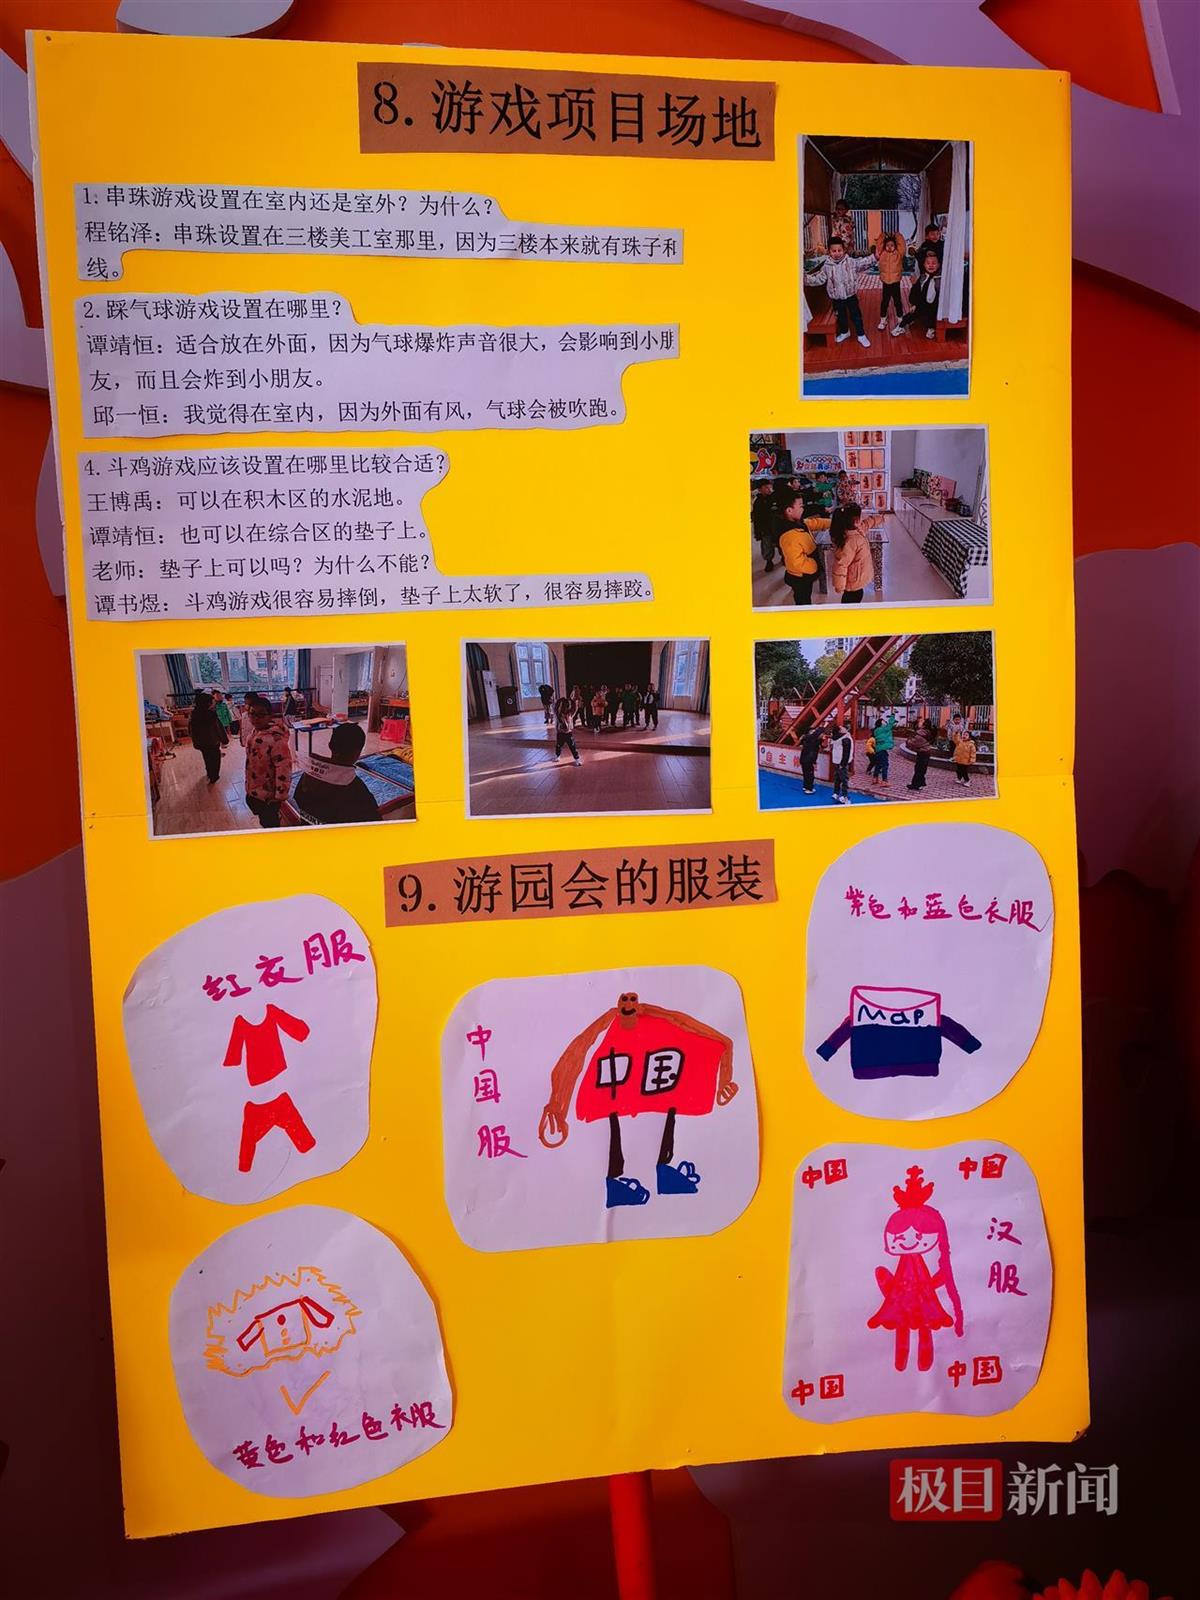 8.游戏项目场地
1.串珠游戏设置在室内还是室外？为什么？
程铭泽：串珠设置在三楼美工室那里，因为三楼本来就有珠子和
线。
2.踩气球游戏设置在哪里？
谭靖恒：适合放在外面，因为气球爆炸声音很大，会影响到小朋
友，而且会炸到小朋友。
邱一恒：我觉得在室内，因为外面有风，气球会被吹跑。
4.斗鸡游戏应该设置在哪里比较合适？
王博禹：可以在积木区的水泥地。
谭靖恒：也可以在综合区的垫子上。
老师：垫子上可以吗？为什么不能？
谭书煜：斗鸡游戏很容易摔倒，垫子上太软了，很容易摔跤。
自主
9.游园会的服装
红衣服
中国服
中国
紫色和蓝色衣服
Map
黄色和红色衣服
中国
中国
汉服
中国
中国
极目新闻